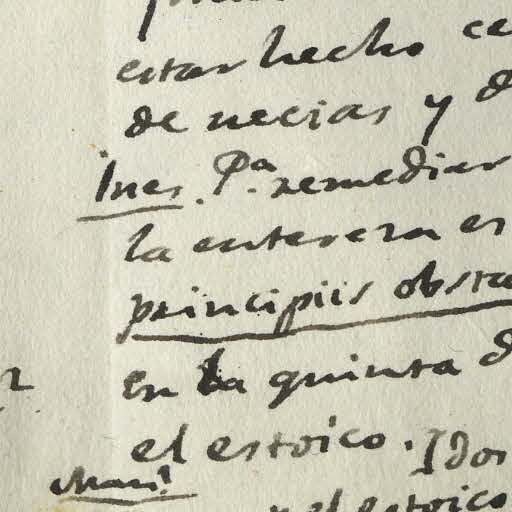 estar hecho ce
de necias y d
Ines. Pa. remediar
la entereza es
principiis obsta
en la quinta d
el estoico. Idos
Mari
y el estoico